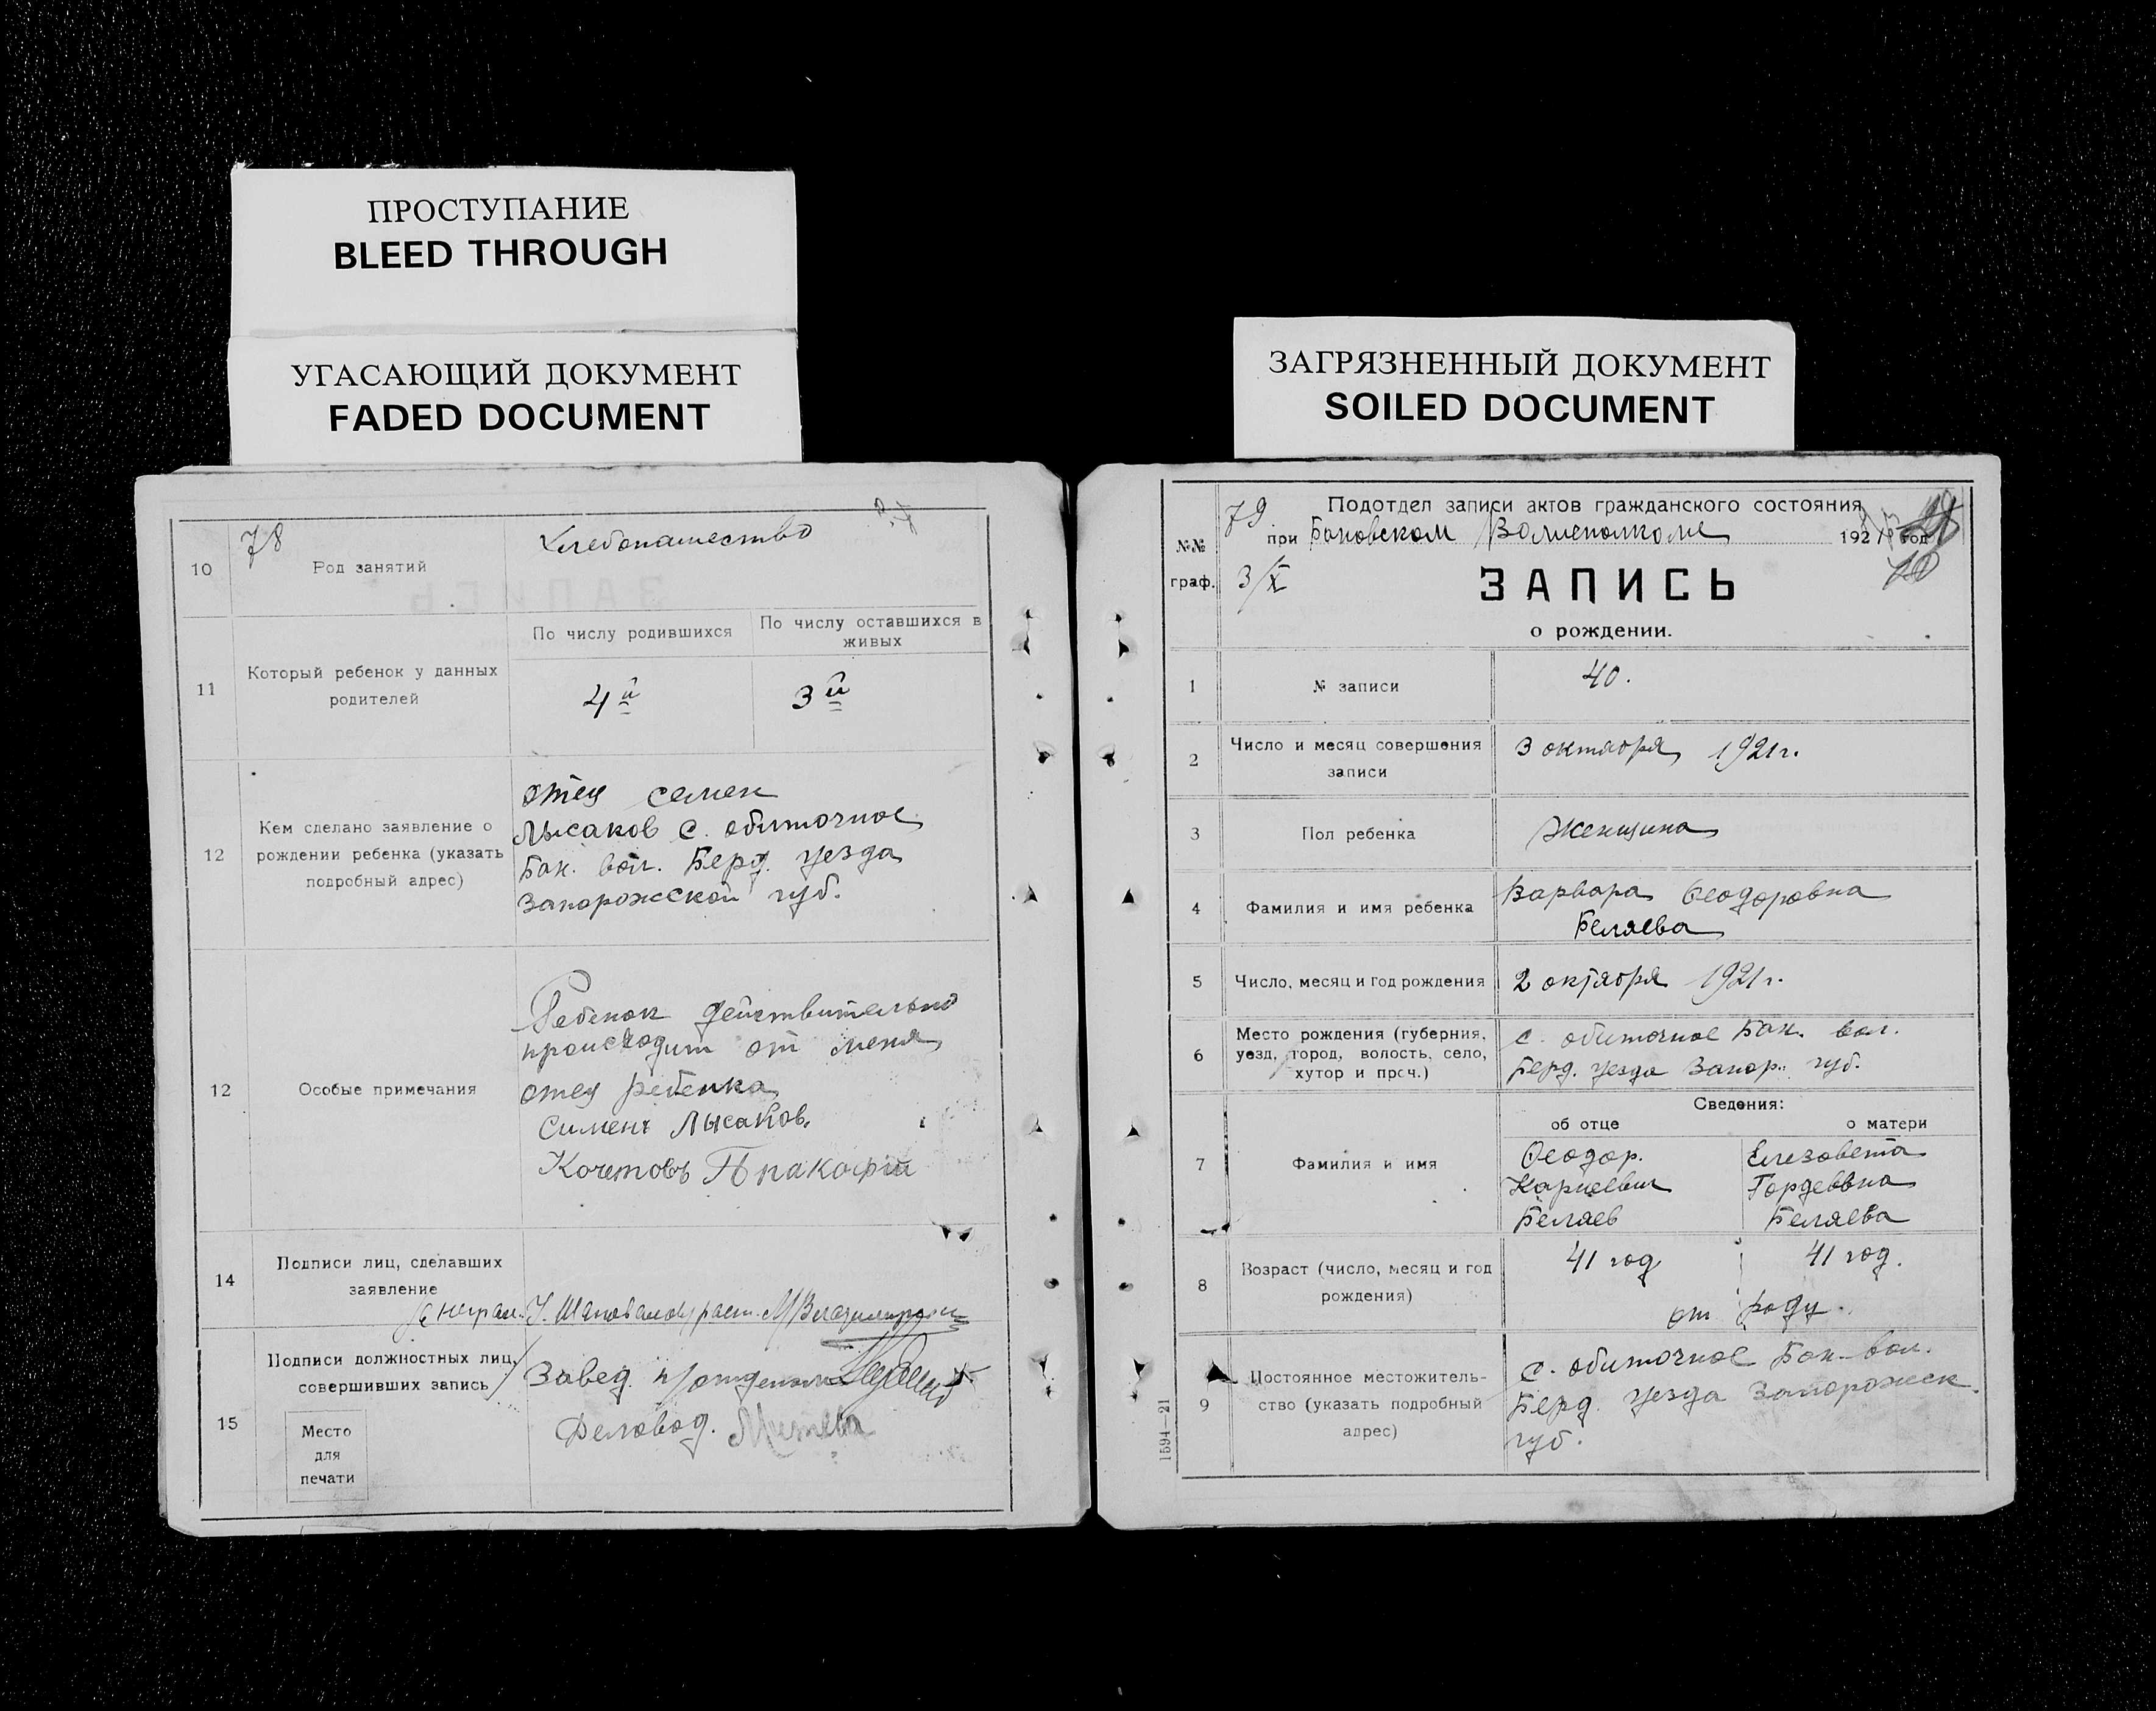 ПРОСТУПАНИЕ
BLEED THROUGH
УГАСАЮЩИЙ ДОКУМЕНТ
FADED DOCUMENT
78
10
Род занятий
Хлебопашество
11
Который ребенок у данных
родителей
По числу родившихся
По числу оставшихся в
живых
4й
3й
12
Кем сделано заявление о
рождении ребенка (указать
подробный адрес)
отец семен
Лысаков с. обиточное
Бан. вол. Берд. уезда
Запорожсской губ.
12
Особые примечания
Ребенок действительно
происходит от меня
отец ребенка
Сименъ Лысаков.
Кочетовъ Пракофiй
14
Подписи лиц, сделавших
заявление
15
Подписи должностных лиц,
совершивших запись
Место
для
печати
Завед. п/отделом
Деловод.
ЗАГРЯЗНЕННЫЙ ДОКУМЕНТ
SOILED DOCUMENT
79
Подотдел записи актов гражданского состояния
№№
граф.
при Бановском Волисполкоме 1921 год
3/X
ЗАПИСЬ
о рождении.
1
№ записи
40.
2
Число и месяц совершения
записи
3 октября 1921г.
3
Пол ребенка
Женщина
4
Фамилия и имя ребенка
Варвара Феодоровна
Беляева
5
Число, месяц и год рождения
2 октября 1921г.
6
Место рождения (губерния,
уезд, город, волость, село,
хутор и проч.)
с. обиточное Бан. вол.
Берд. уезда Запор. губ.
Сведения:
об отце
о матери
7
Фамилия и имя
Феодор.
Карпеевич
Беляев
Елезовета
Гордеевна
Беляева
8
Возраст (число, месяц и год
рождения)
41 год
41 год.
от роду.
9
Постоянное местожитель-
ство (указать подробный
адрес)
с. обиточное Бан. вол.
Берд. уезда Запорожск.
губ.
1594—21